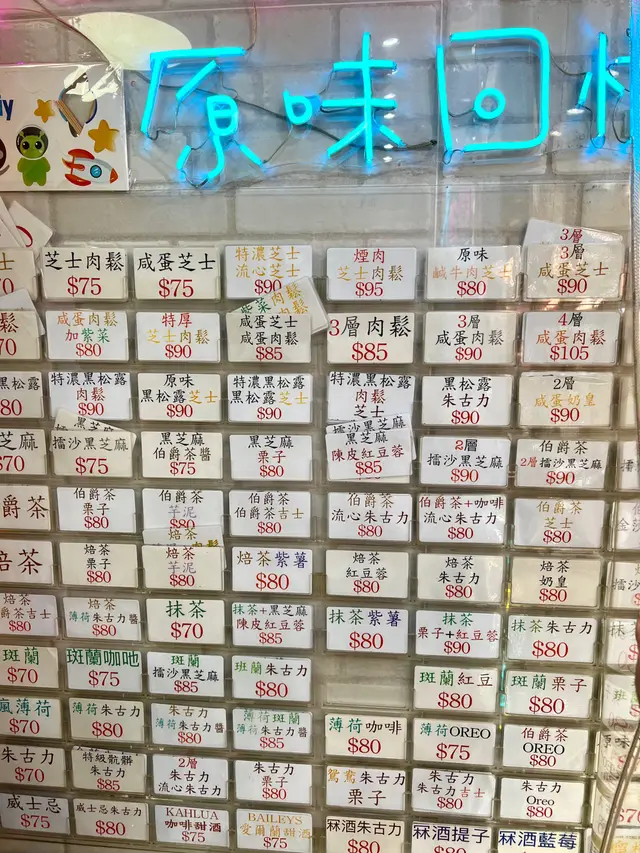 原味回
芝士肉鬆
$75
咸蛋芝士
$75
特濃芝士
流心芝士
$90
煙肉
芝士肉鬆
$95
原味
鹹牛肉芝士
$80
3層
3層
咸蛋芝士
$90
咸蛋肉鬆
加紫菜
$80
特厚
芝士肉鬆
$90
咸蛋芝士
咸蛋肉鬆
$85
3層肉鬆
$85
3層
咸蛋肉鬆
$90
4層
咸蛋肉鬆
$105
特濃黑松露
肉鬆
$90
原味
黑松露芝士
$90
特濃黑松露
黑松露芝士
$90
特濃黑松露
肉鬆
芝士
黑松露
朱古力
$90
2層
咸蛋奶皇
$90
擂沙黑芝麻
$75
黑芝麻
伯爵茶醬
$75
黑芝麻
栗子
$80
黑芝麻
陳皮紅豆蓉
$85
2層
擂沙黑芝麻
$90
伯爵茶
2層擂沙黑芝麻
$90
伯爵茶
栗子
$80
伯爵茶
芋泥
$80
伯爵茶
伯爵茶吉士
$80
伯爵茶
流心朱古力
$80
伯爵茶+咖啡
流心朱古力
$80
伯爵茶
芝士
$80
焙茶
焙茶
栗子
$80
焙茶
芋泥
$80
焙茶紫薯
$80
焙茶
紅豆蓉
$80
焙茶
朱古力
$80
焙茶
奶皇
$80
焙茶
伯爵茶吉士
$80
焙茶
薄荷朱古力醬
$80
抹茶
$70
抹茶+黑芝麻
陳皮紅豆蓉
$85
抹茶紫薯
$80
抹茶
栗子+紅豆蓉
$90
抹茶朱古力
$80
斑蘭
$70
斑蘭咖吔
$75
斑蘭
擂沙黑芝麻
$85
班蘭朱古力
$80
斑蘭紅豆
$80
斑蘭栗子
$80
薄荷
$70
薄荷朱古力
$80
朱古力
薄荷朱古力醬
$80
薄荷斑蘭
薄荷朱古力醬
$85
薄荷咖啡
$80
薄荷OREO
$75
伯爵茶
OREO
$80
朱古力
$70
特級骯髒
朱古力
$85
2層
朱古力
流心朱古力
朱古力
栗子
$80
鴛鴦朱古力
栗子
朱古力
朱古力吉士
$80
朱古力
Oreo
$80
威士忌
$75
威士忌朱古力
$80
KAHLUA
咖啡甜酒
$75
BAILEYS
愛爾蘭甜酒
$75
冧酒朱古力
$80
冧酒提子
$80
冧酒藍莓
$80